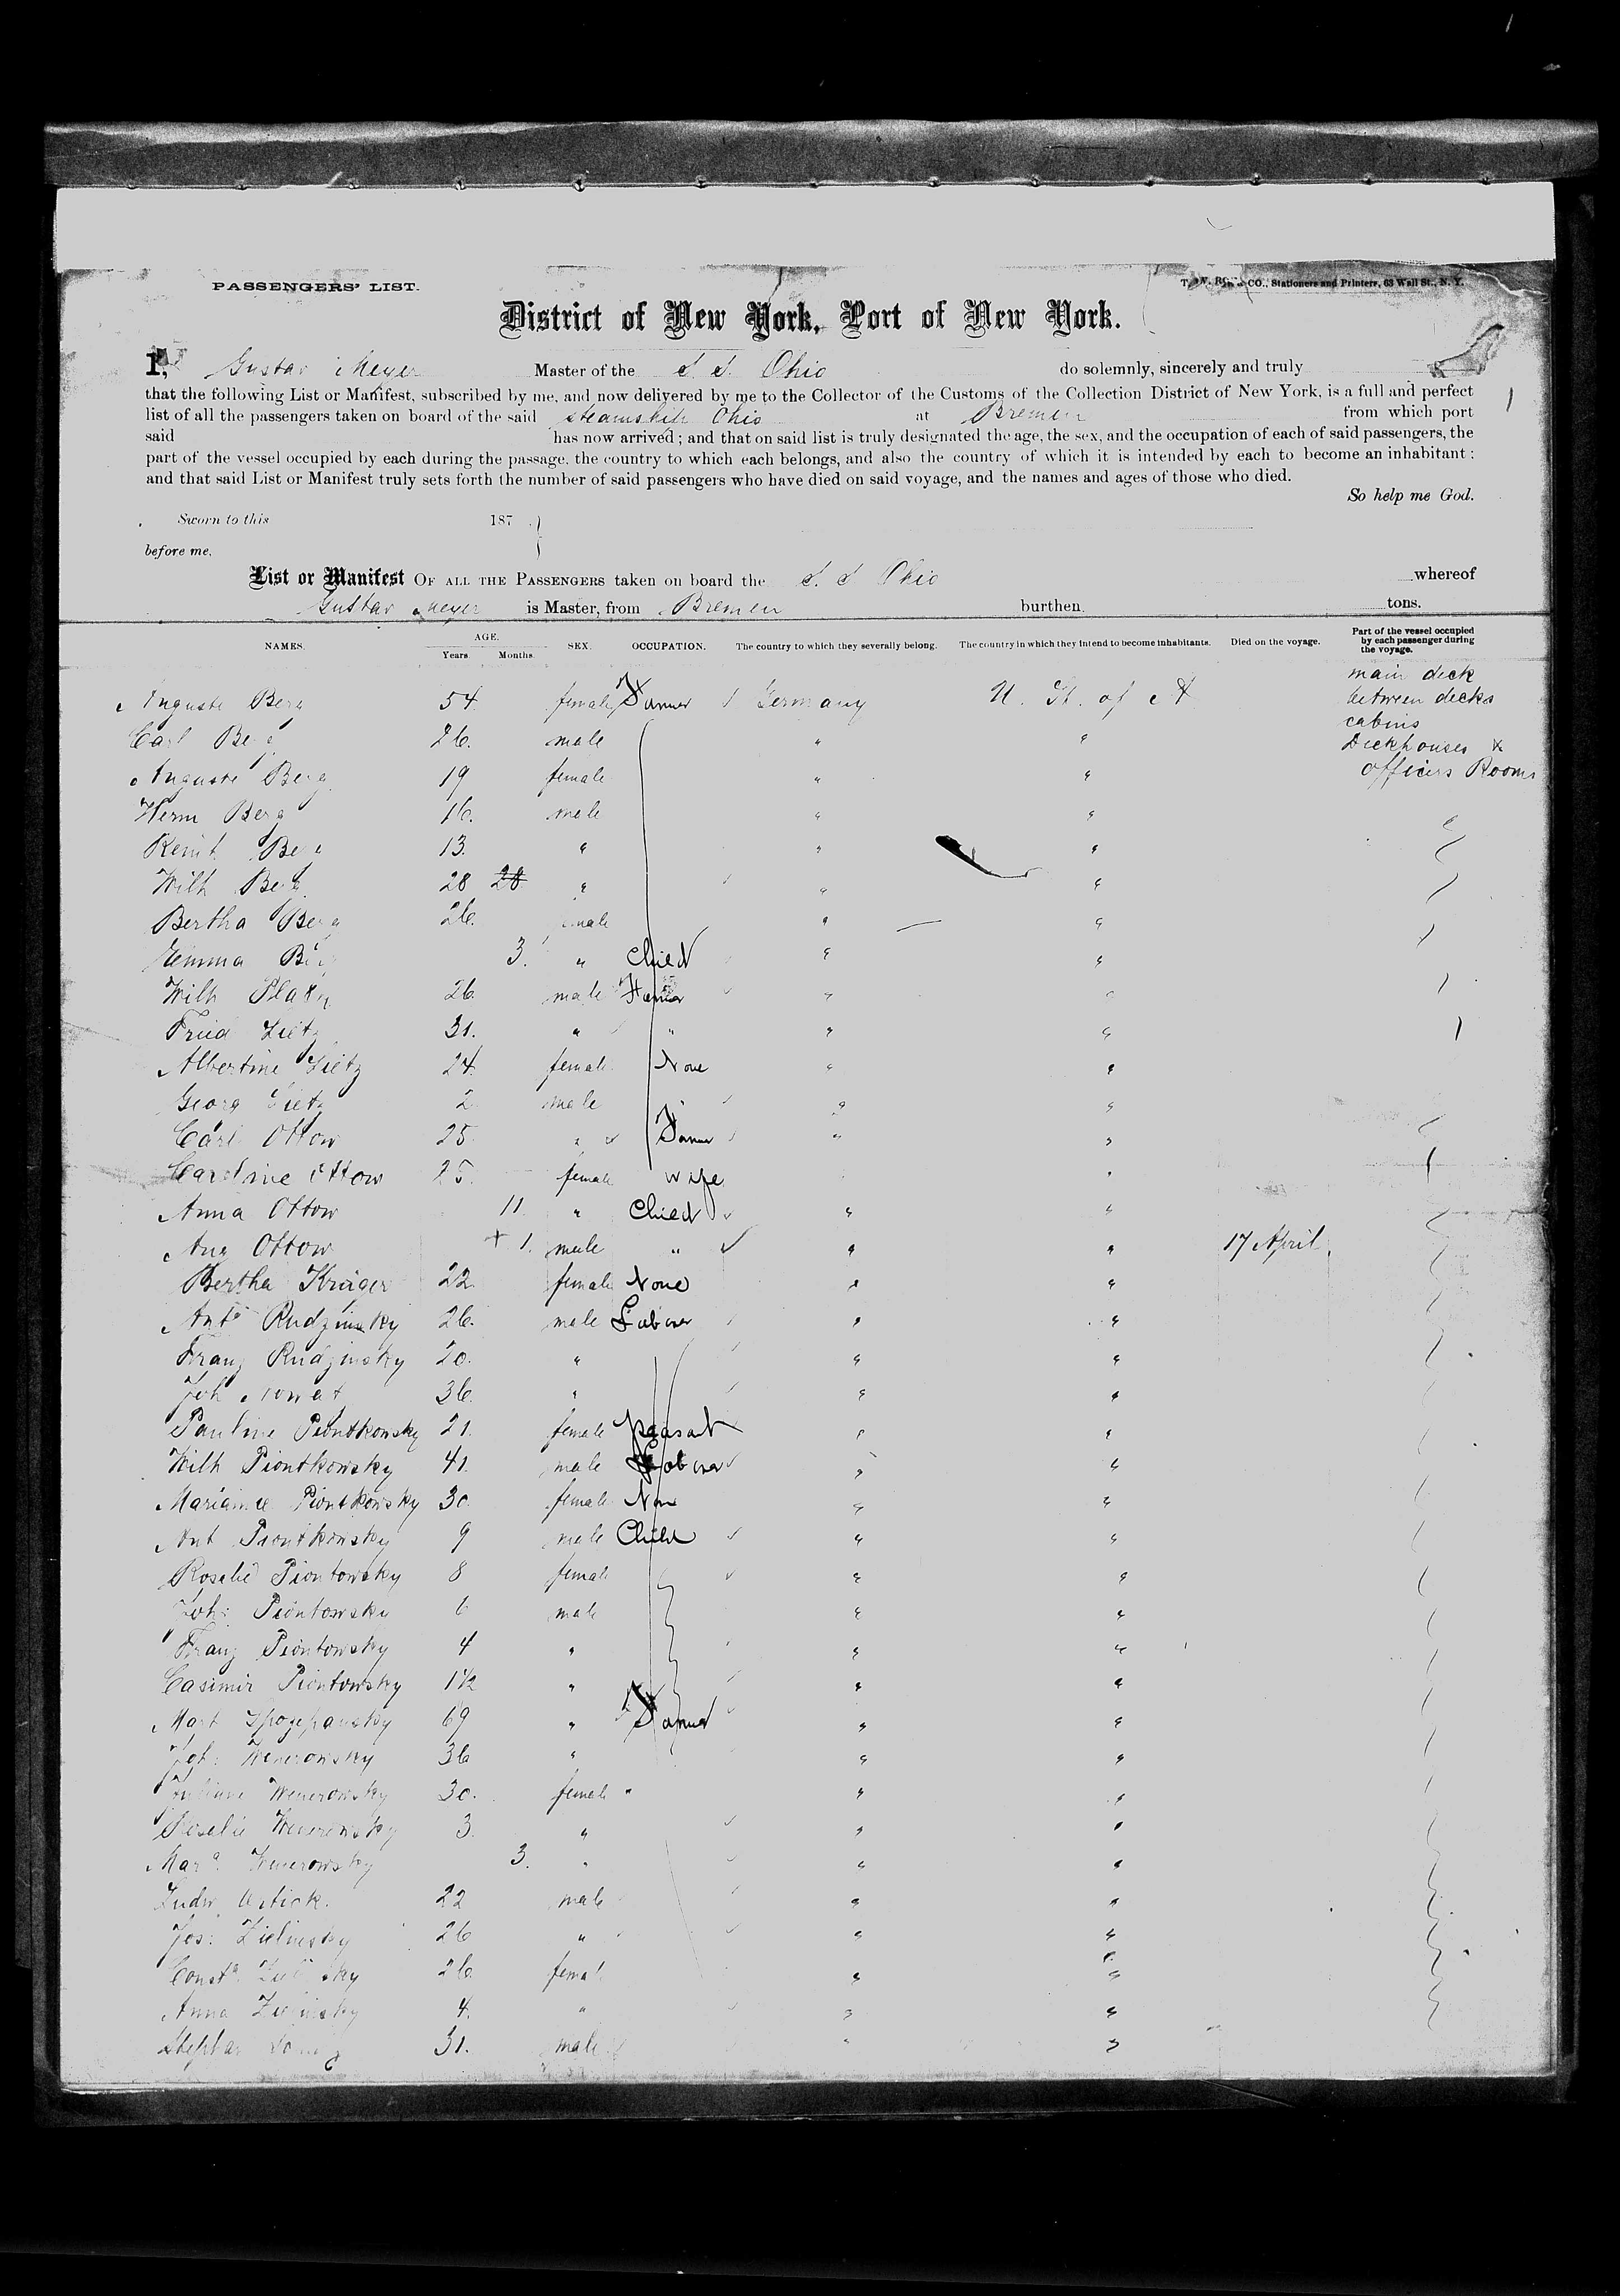 PASSENGERS' LIST.
CO., Stationers and Printers, 63 Wall St., N. Y.
District of New York, Port of New York.
I, Gustav Meyer Master of the S. S. Ohio do solemnly, sincerely and truly
that the following List or Manifest, subscribed by me, and now delivered by me to the Collector of the Customs of the Collection District of New York, is a full and perfect
list of all the passengers taken on board of the said steamship Ohio at Bremen from which port
said has now arrived; and that on said list is truly designated the age, the sex, and the occupation of each of said passengers, the
part of the vessel occupied by each during the passage, the country to which each belongs, and also the country of which it is intended by each to become an inhabitant;
and that said List or Manifest truly sets forth the number of said passengers who have died on said voyage, and the names and ages of those who died.
So help me God.
Sworn to this 187
before me,
List or Manifest OF ALL THE PASSENGERS taken on board the S. S Ohio whereof
Gustav Meyer is Master, from Bremen burthen tons.
NAMES. AGE. Years Months. SEX. OCCUPATION. The country to which they severally belong. The country in which they intend to become inhabitants. Died on the voyage. Part of the vessel occupied by each passenger during the voyage.
main deck
Auguste Berg 54 female Farmer Germany U. St. of A between decks
cabins
Carl Berg 26. male " " Deckhouses &
Auguste Berg 19 female " " officers Rooms
Herm Berg 16. male " "
Reinh Berg 13. " " "
Wilh Berg 28 28 " " "
Bertha Berg 26. female " "
Emma Berg 3. " Child " "
Wilh 26 male Farmer " "
Fried Lietz 31. " " " "
Albertine Lietz 24 female None " "
Georg Lietz 2 male " "
Carl Ottow 25 " Farmer " "
Caroline Ottow 25. female wife "
Anna Ottow 11. " Child " "
Aug Ottow + 1. male " " " 17 April.
Bertha Krüger 22 female None " "
Anto Rudzinsky 26. male Laborer " "
Franz Rudzinsky 20. " " "
Joh Nowat 36 " " "
Pauline Piontkowsky 21. female peasant " "
Wilh Piontkowsky 41. male Laborer " "
Marianne Piontkowsky 30 female None " "
Ant Piontkowsky 9 male Child " "
Rosalie Piontowsky 8 female " "
Joh: Piontowsky 6 male " "
Franz Piontowsky 4 " " "
Casimir Piontowsky 1 1/2 " " "
Mart 69 " Farmer " "
Joh: Wenerowsky 36 " " "
Wenerowsky 30. female " " "
Roselie Wenerowsky 3 " " "
Mara. Wenerowsky 3. " " "
Ludw 22 male " "
Jos: Zielinsky 26 " " "
Consta Zielinsky 26. female " "
Anna Zielinsky 4. " " "
Stephan 31. male " "